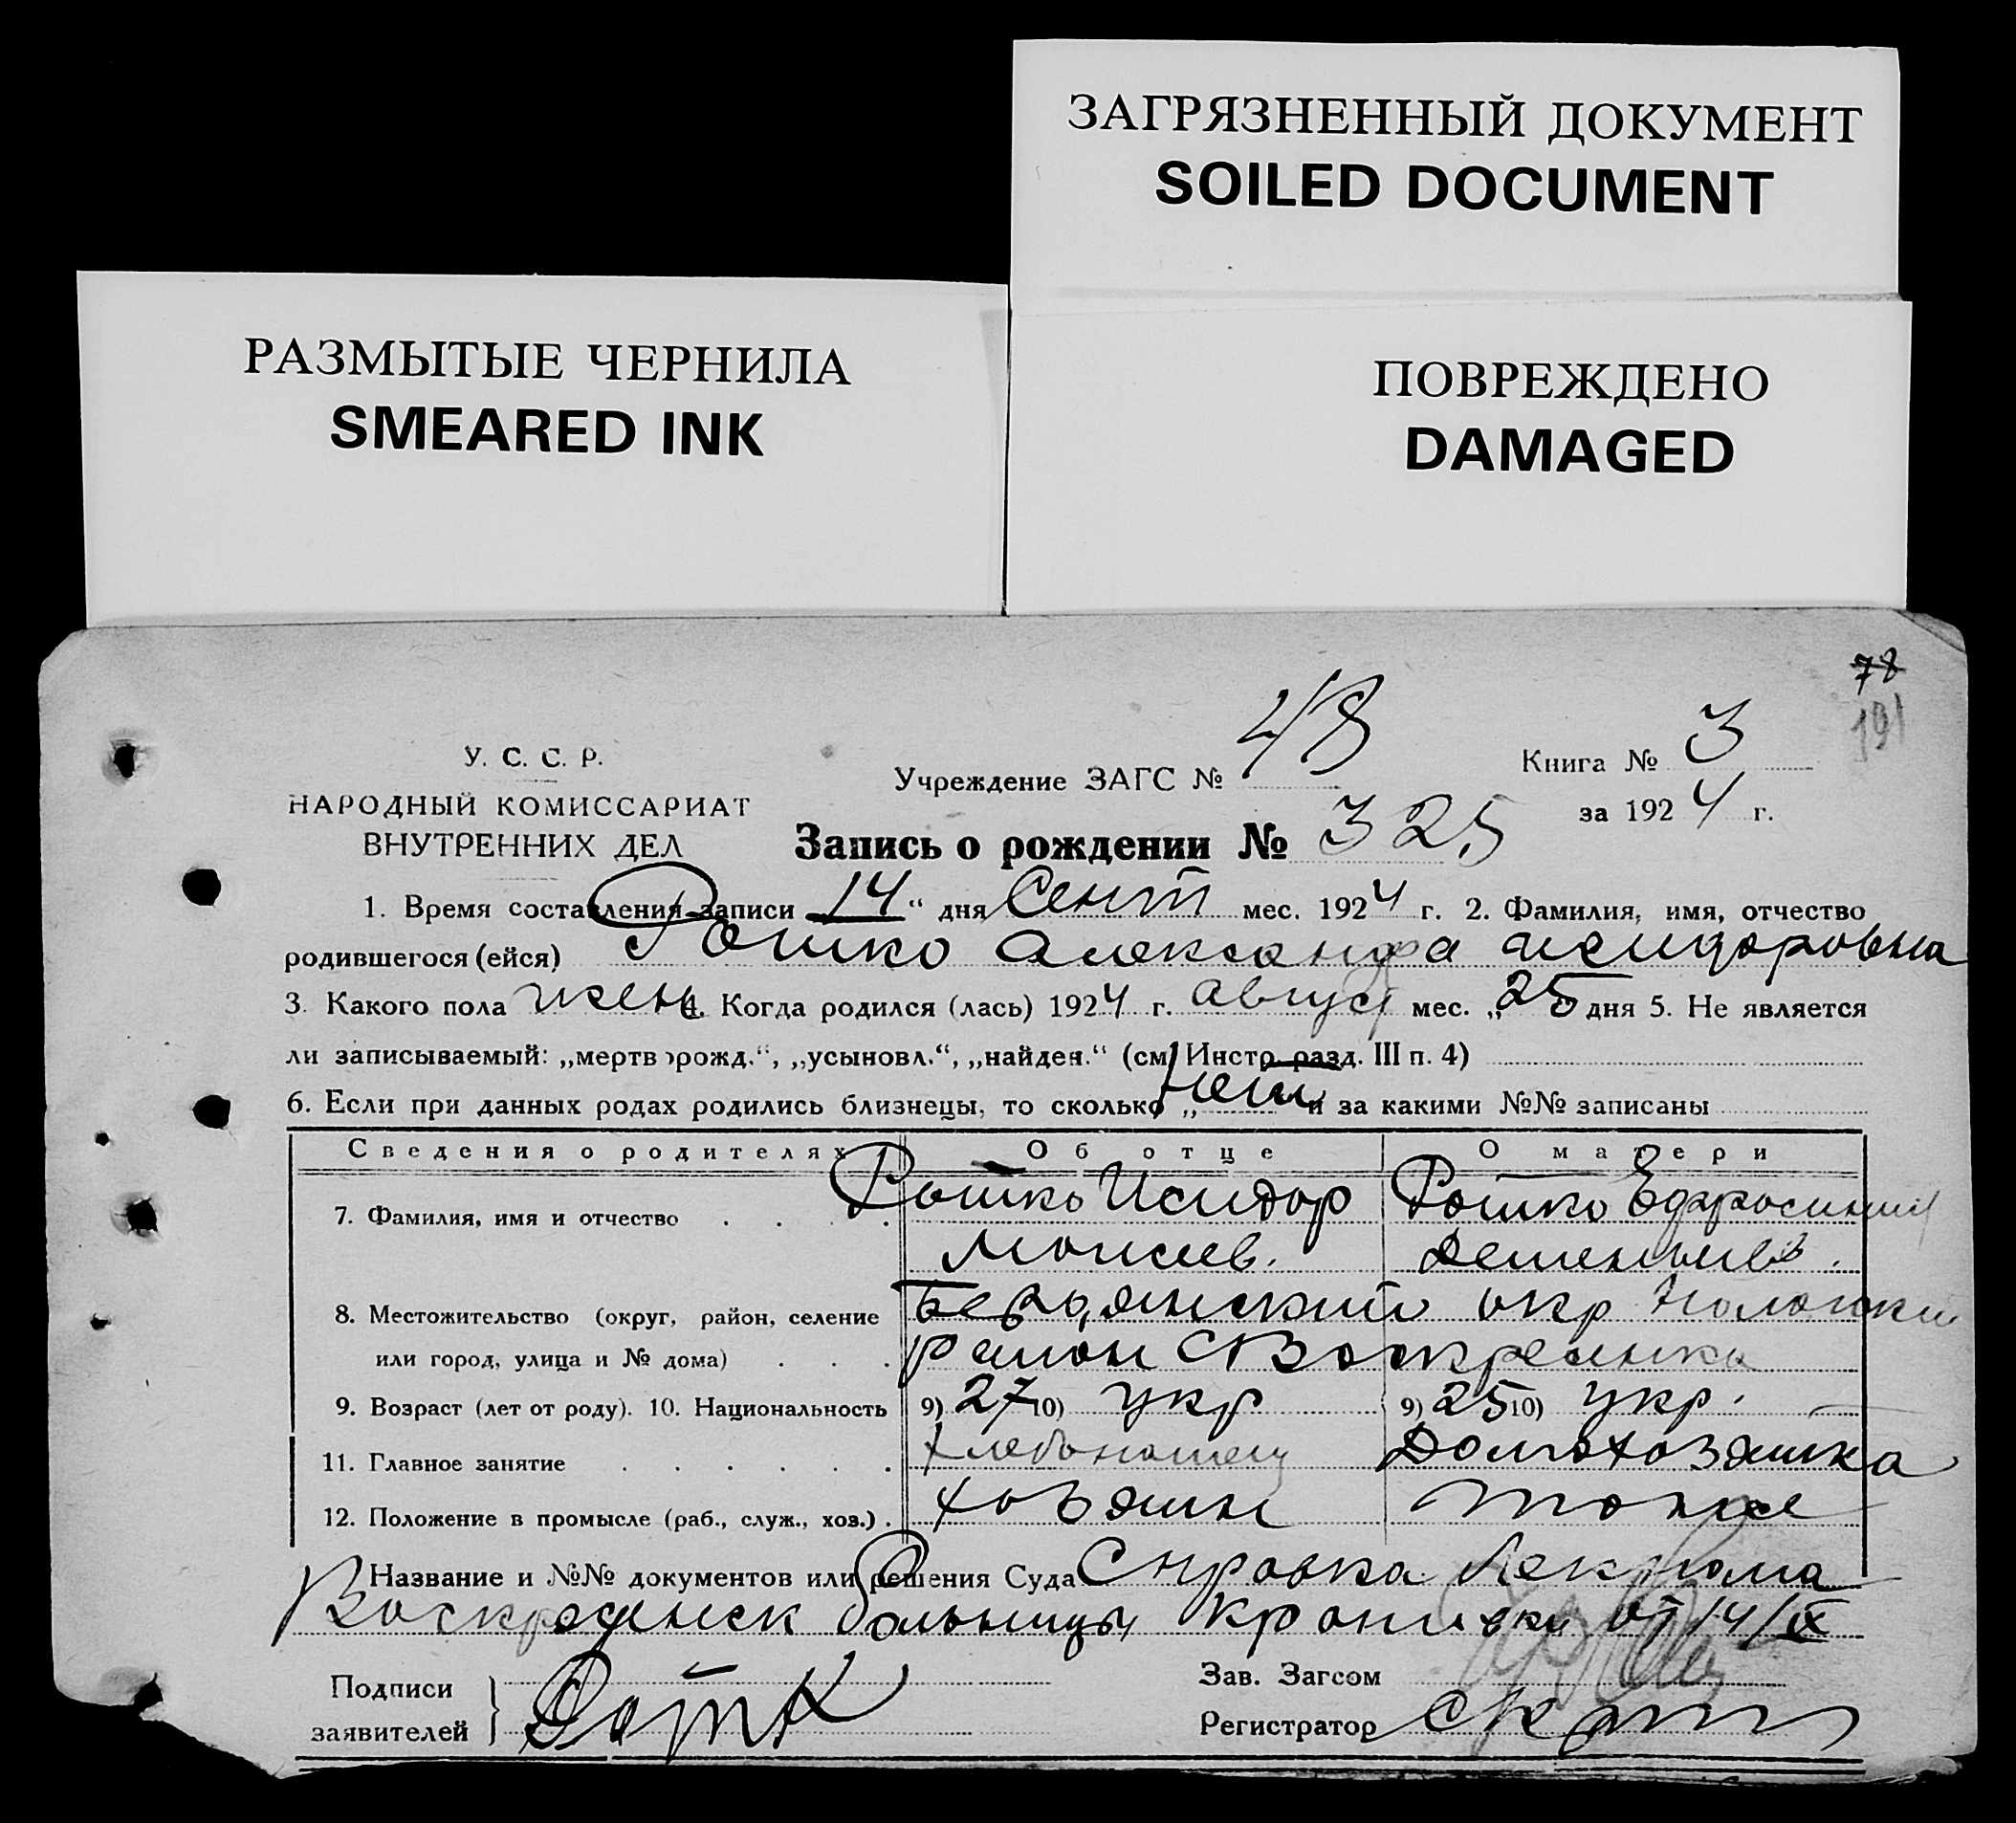 ЗАГРЯЗНЕННЫЙ ДОКУМЕНТ
SOILED DOCUMENT
РАЗМЫТЫЕ ЧЕРНИЛА
SMEARED INK
ПОВРЕЖДЕНО
DAMAGED
78
191
У. С. С. Р.
НАРОДНЫЙ КОМИССАРИАТ
ВНУТРЕННИХ ДЕЛ
Учреждение ЗАГС № 48
Книга № 3
за 1924 г.
Запись о рождении № 325
1. Время составления записи 14 “ дня Сент мес. 1924 г. 2. Фамилия, имя, отчество
родившегося (ейся) Рошко Александра Исидоровна
3. Какого пола жен 4. Когда родился (лась) 1924 г. август мес. „25 дня 5. Не является
ли записываемый: „мертворожд.“, „усыновл.“, „найден.“ (см. Инстр. разд. III п. 4)
6. Если при данных родах родились близнецы, то сколько „ нет и за какими №№ записаны
Сведения о родителях Об отце О матери
7. Фамилия, имя и отчество . . . . Рошко Исидор Рошко Ефросиния
Моисеев. Дементьев.
8. Местожительство (округ, район, селение Бердянский окр Пологский
или город, улица и № дома) . . . район С Воскресенка
9. Возраст (лет от роду). 10. Национальность 9) 27 10) укр 9) 25 10) укр.
11. Главное занятие . . . . . . Хлебопашец Домохозяйка
12. Положение в промысле (раб., служ., хоз.) . хозяин тоже
Название и №№ документов или решения Суда Справка лекпома
Воскресенск больницы от 14/IX
Подписи
заявителей
Зав. Загсом
Регистратор